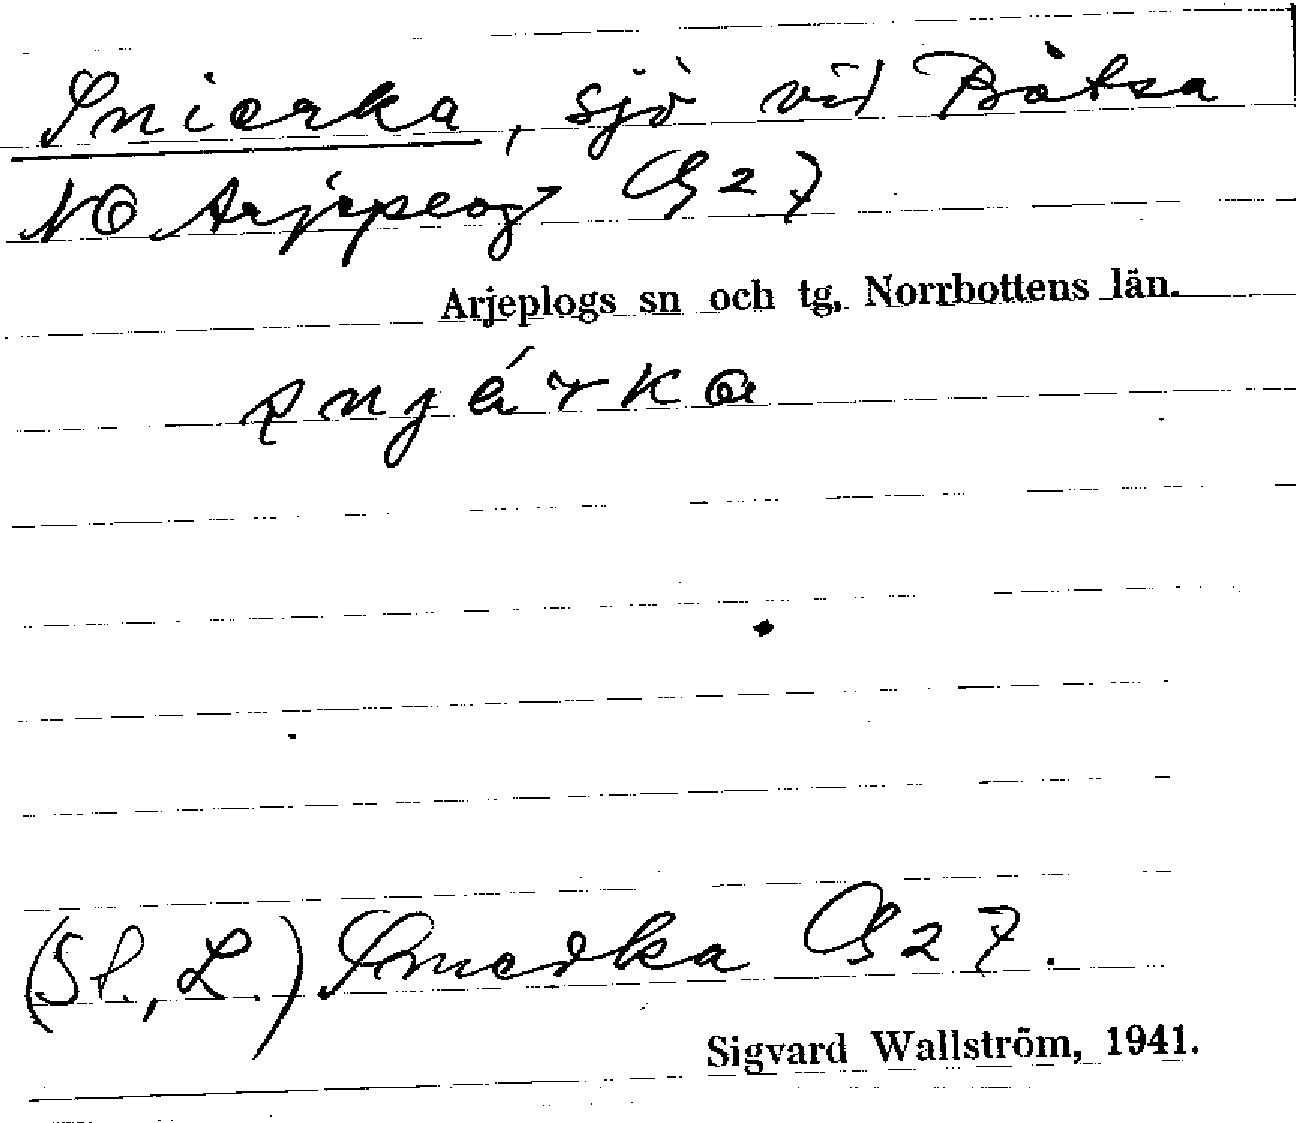 Snierka, sjö vid Båtsa
NO Arjeplog G 27
Arjeplogs sn och tg, Norrbottens län.
snjérka
(St., L.) Snierka G 27.
Sigvard Wallström, 1941.